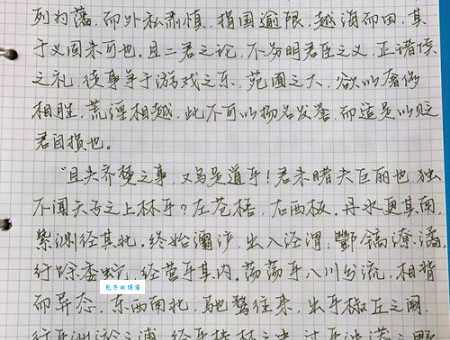 列为东藩，而外私肃慎，捐国逾限，越海而田，其
于义固未可也。且二君之论，不务明君臣之义，正诸侯
之礼，徒事争于游戏之乐，苑囿之大，欲以奢侈
相胜，荒淫相越，此不可以扬名发誉，而适足以贬
君自损也。
“且夫齐楚之事，又乌足道乎！君未睹夫巨丽也，独
不闻天子之上林乎？左苍梧，右西极，丹水更其南，
紫渊径其北。终始灞浐，出入泾渭，酆镐潦潏，
行，经营乎其内。荡荡乎八川分流，相背
而异态。东西南北，驰骛往来，出乎椒丘之阙，
行乎洲淤之浦，经乎桂林之中，过乎泱漭之野